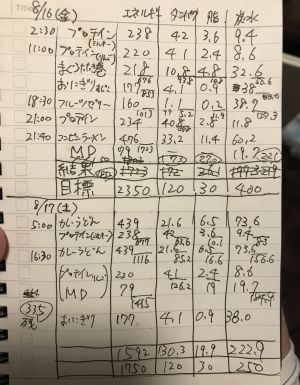 8/16(金) エネルギー タンパク 脂 炭水
2:30 プロテイン 238 42 3.6 9.4
11:00 プロテイン 220 41 2.4 8.6
まぐろたたき巻 218 10.8 4.8 32.6
おにぎり 177 4.1 0.9 38
18:30 フルーツゼリー 160 1.1 0.2 38.7
21:00 プロテイン 234 40.8 2.8 11.8
21:40 コンビニラーメン 476 33.2 11.4 60.2
MD 79 1723 19.7 221
結果
目標 2350 120 30 400
8/17(土)
5:00 カレーうどん 439 21.6 6.5 73.6
プロテイン 238 42 3.6 9.4
677 10.1
16:30 カレーうどん 439 21.6 6.5 73.6
1116 16.6 156.6
プロテイン 220 41 2.4 8.6
(MD) 79 19 19.7
126.2
335
残 おにぎり 177 4.1 0.9 38.0
1592 130.3 19.9 222.9
1750 120 30 250